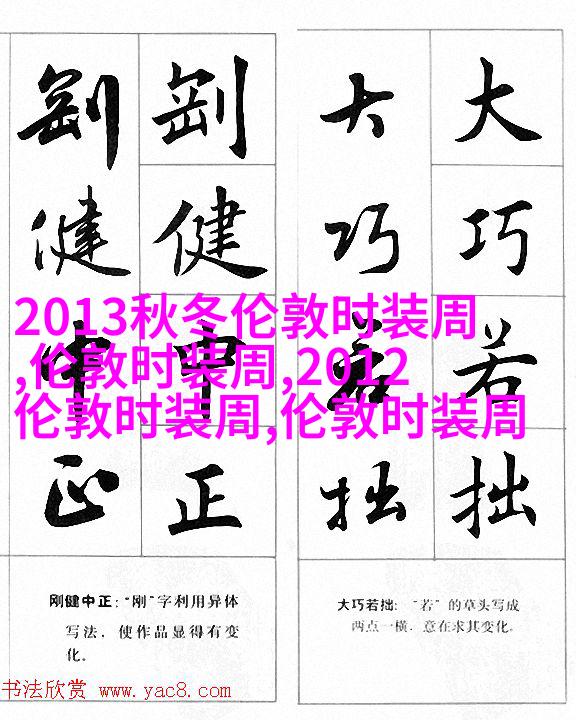 剛剛
健健
中中
正正
刚健中正:“刚”字利用异体
写法,使作品显得有变
化。
大大
巧巧
若若
拙拙
大巧若拙:“若”的草头写成
两点一横,意在求其变化。
2013秋冬伦敦时装周
,伦敦时装周,2012
伦敦时装周,伦敦时装周
书法欣赏 www.yac8.com